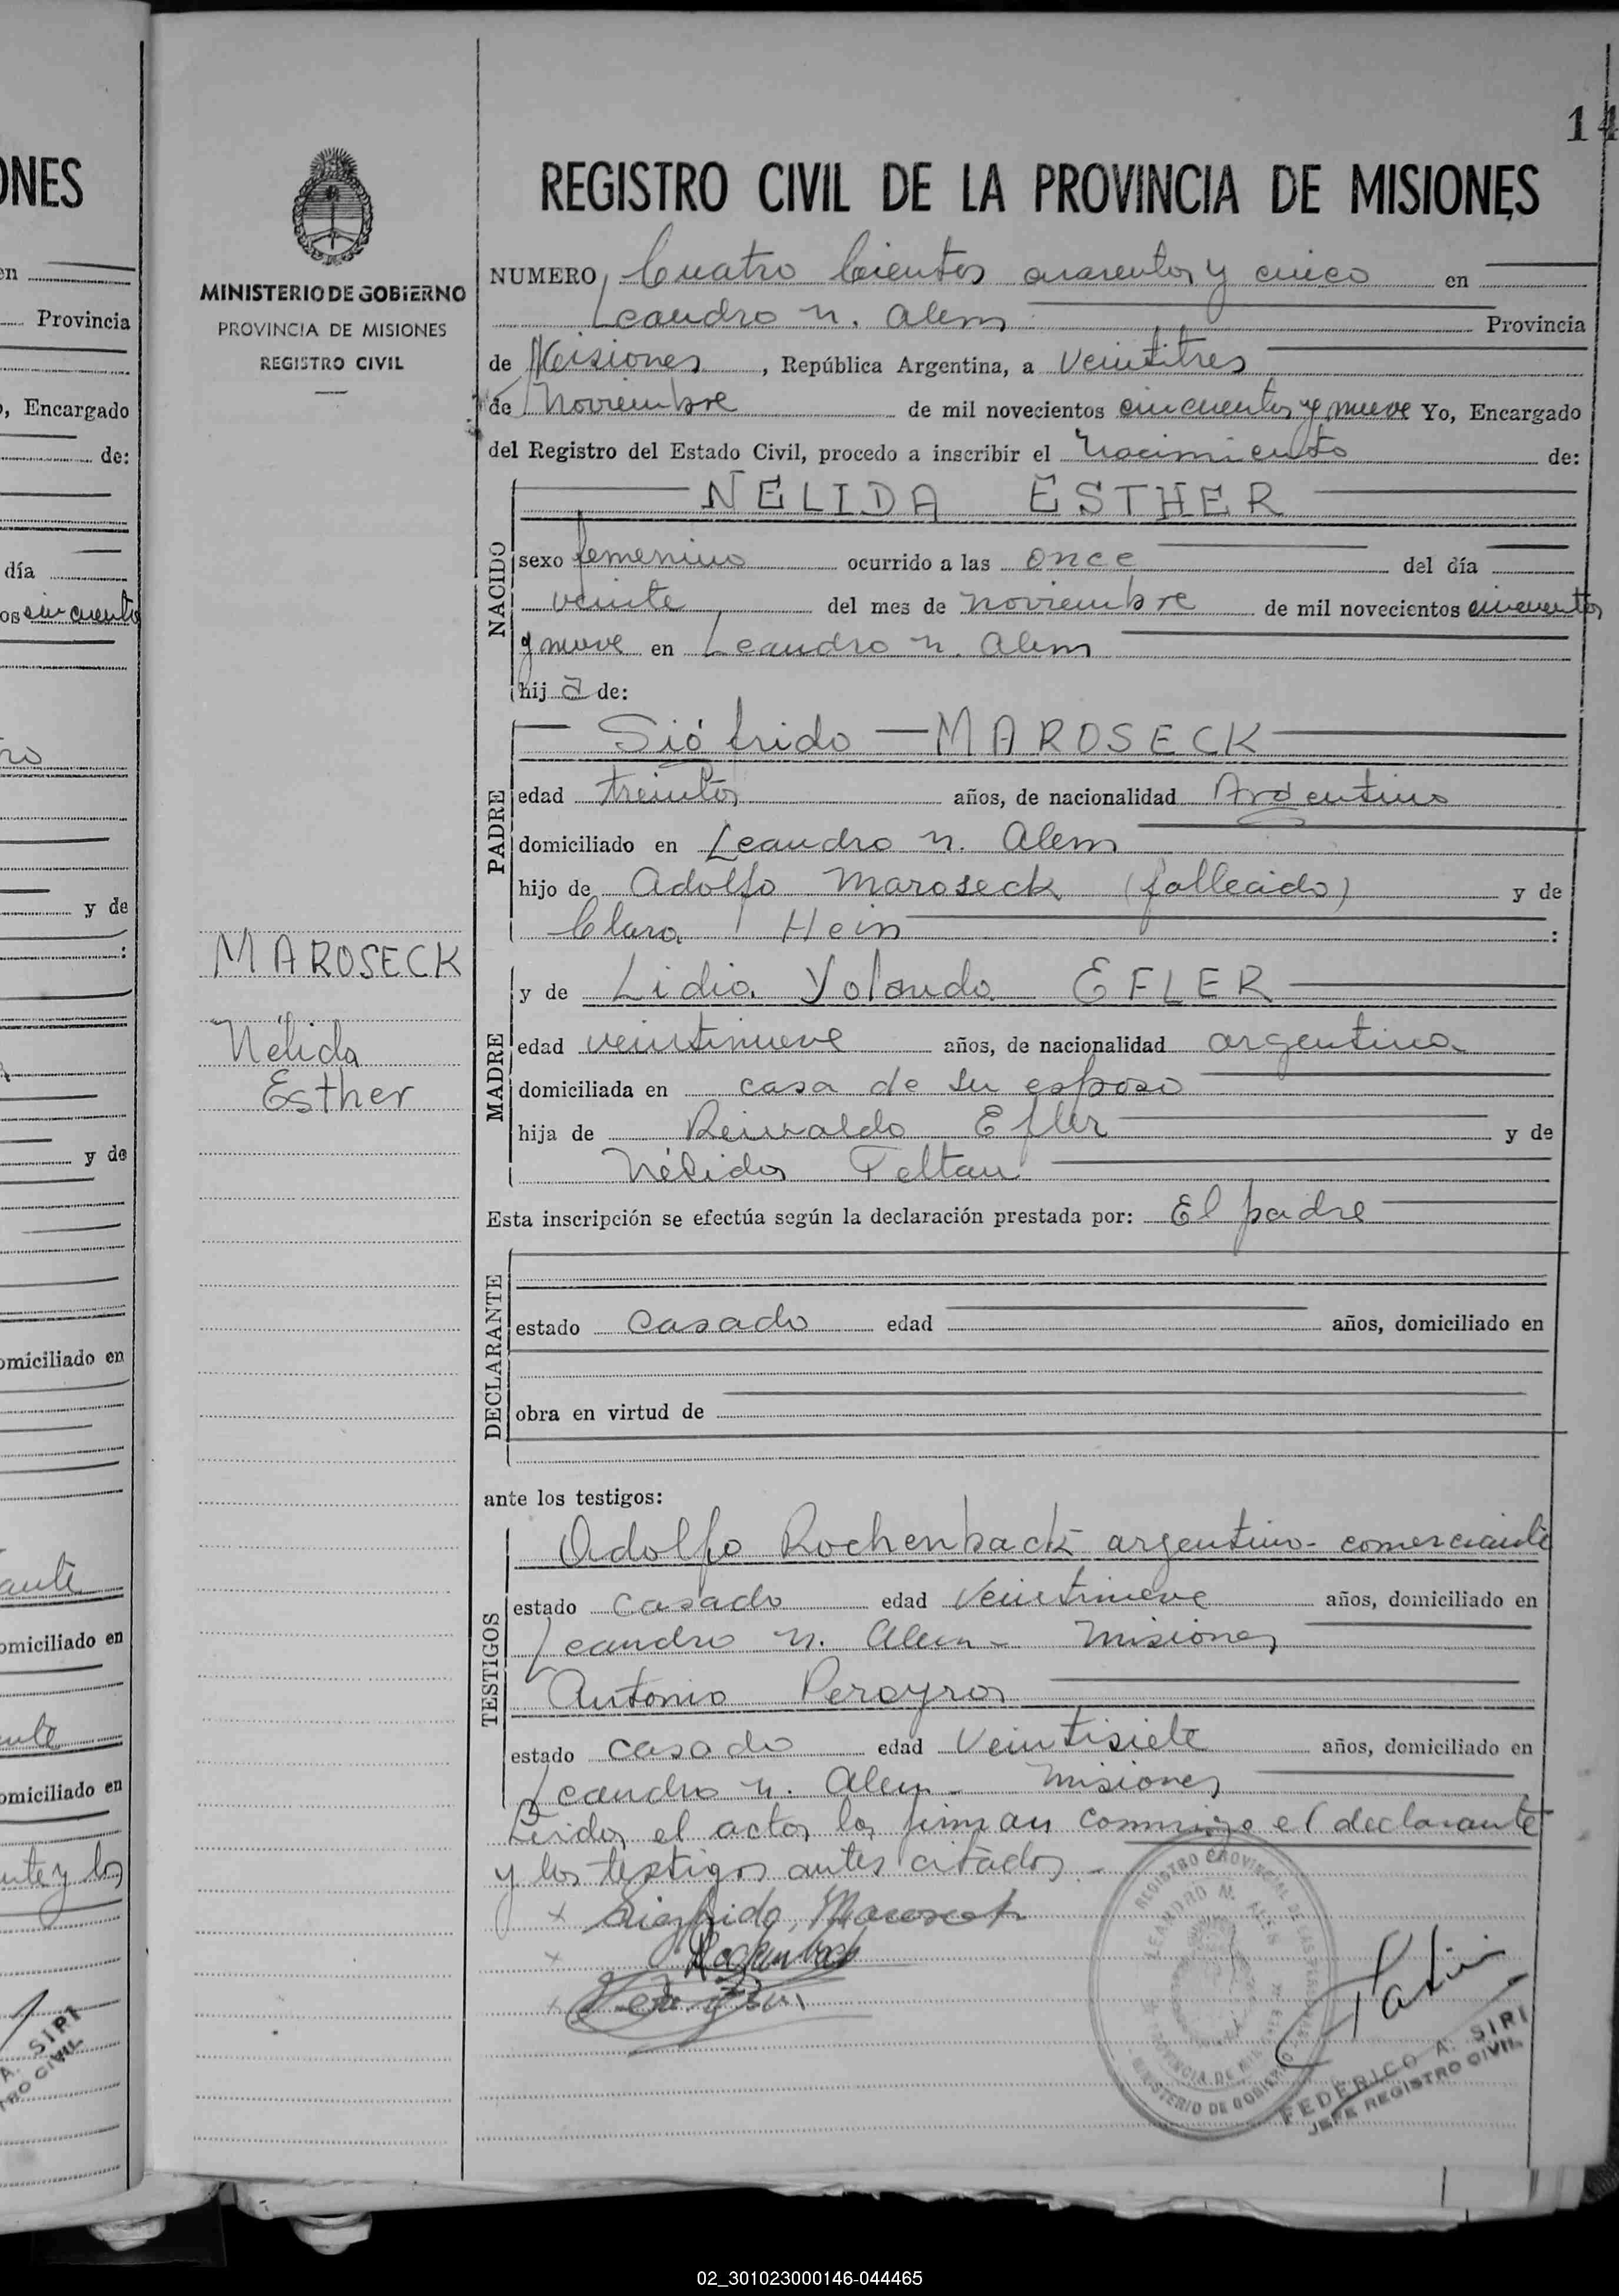 ONES
en
Provincia
, Encargado
de:
día
os cincuenta
ro
y de
:
y de
omiciliado en
ante
omiciliado en
omiciliado en
A. SIRI
14
MINISTERIO DE GOBIERNO
PROVINCIA DE MISIONES
REGISTRO CIVIL
MAROSECK
Nélida
Esther
REGISTRO CIVIL DE LA PROVINCIA DE MISIONES
NUMERO Cuatro Cientos cuarenta y cinco en
Leandro N. Alem Provincia
de Misiones, República Argentina, a Veintitres
de Noviembre de mil novecientos cincuenta y nueve Yo, Encargado
del Registro del Estado Civil, procedo a inscribir el Nacimiento de:
NACIDO
NELIDA ESTHER
sexo femenino ocurrido a las once del día
veinte del mes de noviembre de mil novecientos cincuenta
y nueve en Leandro N. Alem
hij a de:
PADRE
Sigfrido MAROSECK
edad treinta años, de nacionalidad Argentino
domiciliado en Leandro N. Alem
hijo de Adolfo Maroseck (fallecido) y de
Clara Hein :
MADRE
y de Lidia Yolanda EFLER
edad veintinueve años, de nacionalidad argentina
domiciliada en casa de su esposo
hija de Reinaldo Efler y de
Nélida Feltan
Esta inscripción se efectúa según la declaración prestada por: El padre
DECLARANTE
estado casado edad años, domiciliado en
obra en virtud de
ante los testigos:
TESTIGOS
Adolfo Rochenback argentino - comerciante
estado casado edad Veintinueve años, domiciliado en
Leandro N. Alem - Misiones
Antonio Pereyra
estado casado edad Veintisiete años, domiciliado en
Leandro N. Alem - Misiones
Leida el acta la firman conmigo el declarante
y los testigos antes citados -
x Sigfrido Maroseck
x
x
REGISTRO PROVINCIAL DE LAS PERSONAS
LEANDRO N. ALEM
PROVINCIA DE MISIONES
MINISTERIO DE GOBIERNO
FEDERICO A. SIRI
JEFE REGISTRO CIVIL
02_301023000146-044465